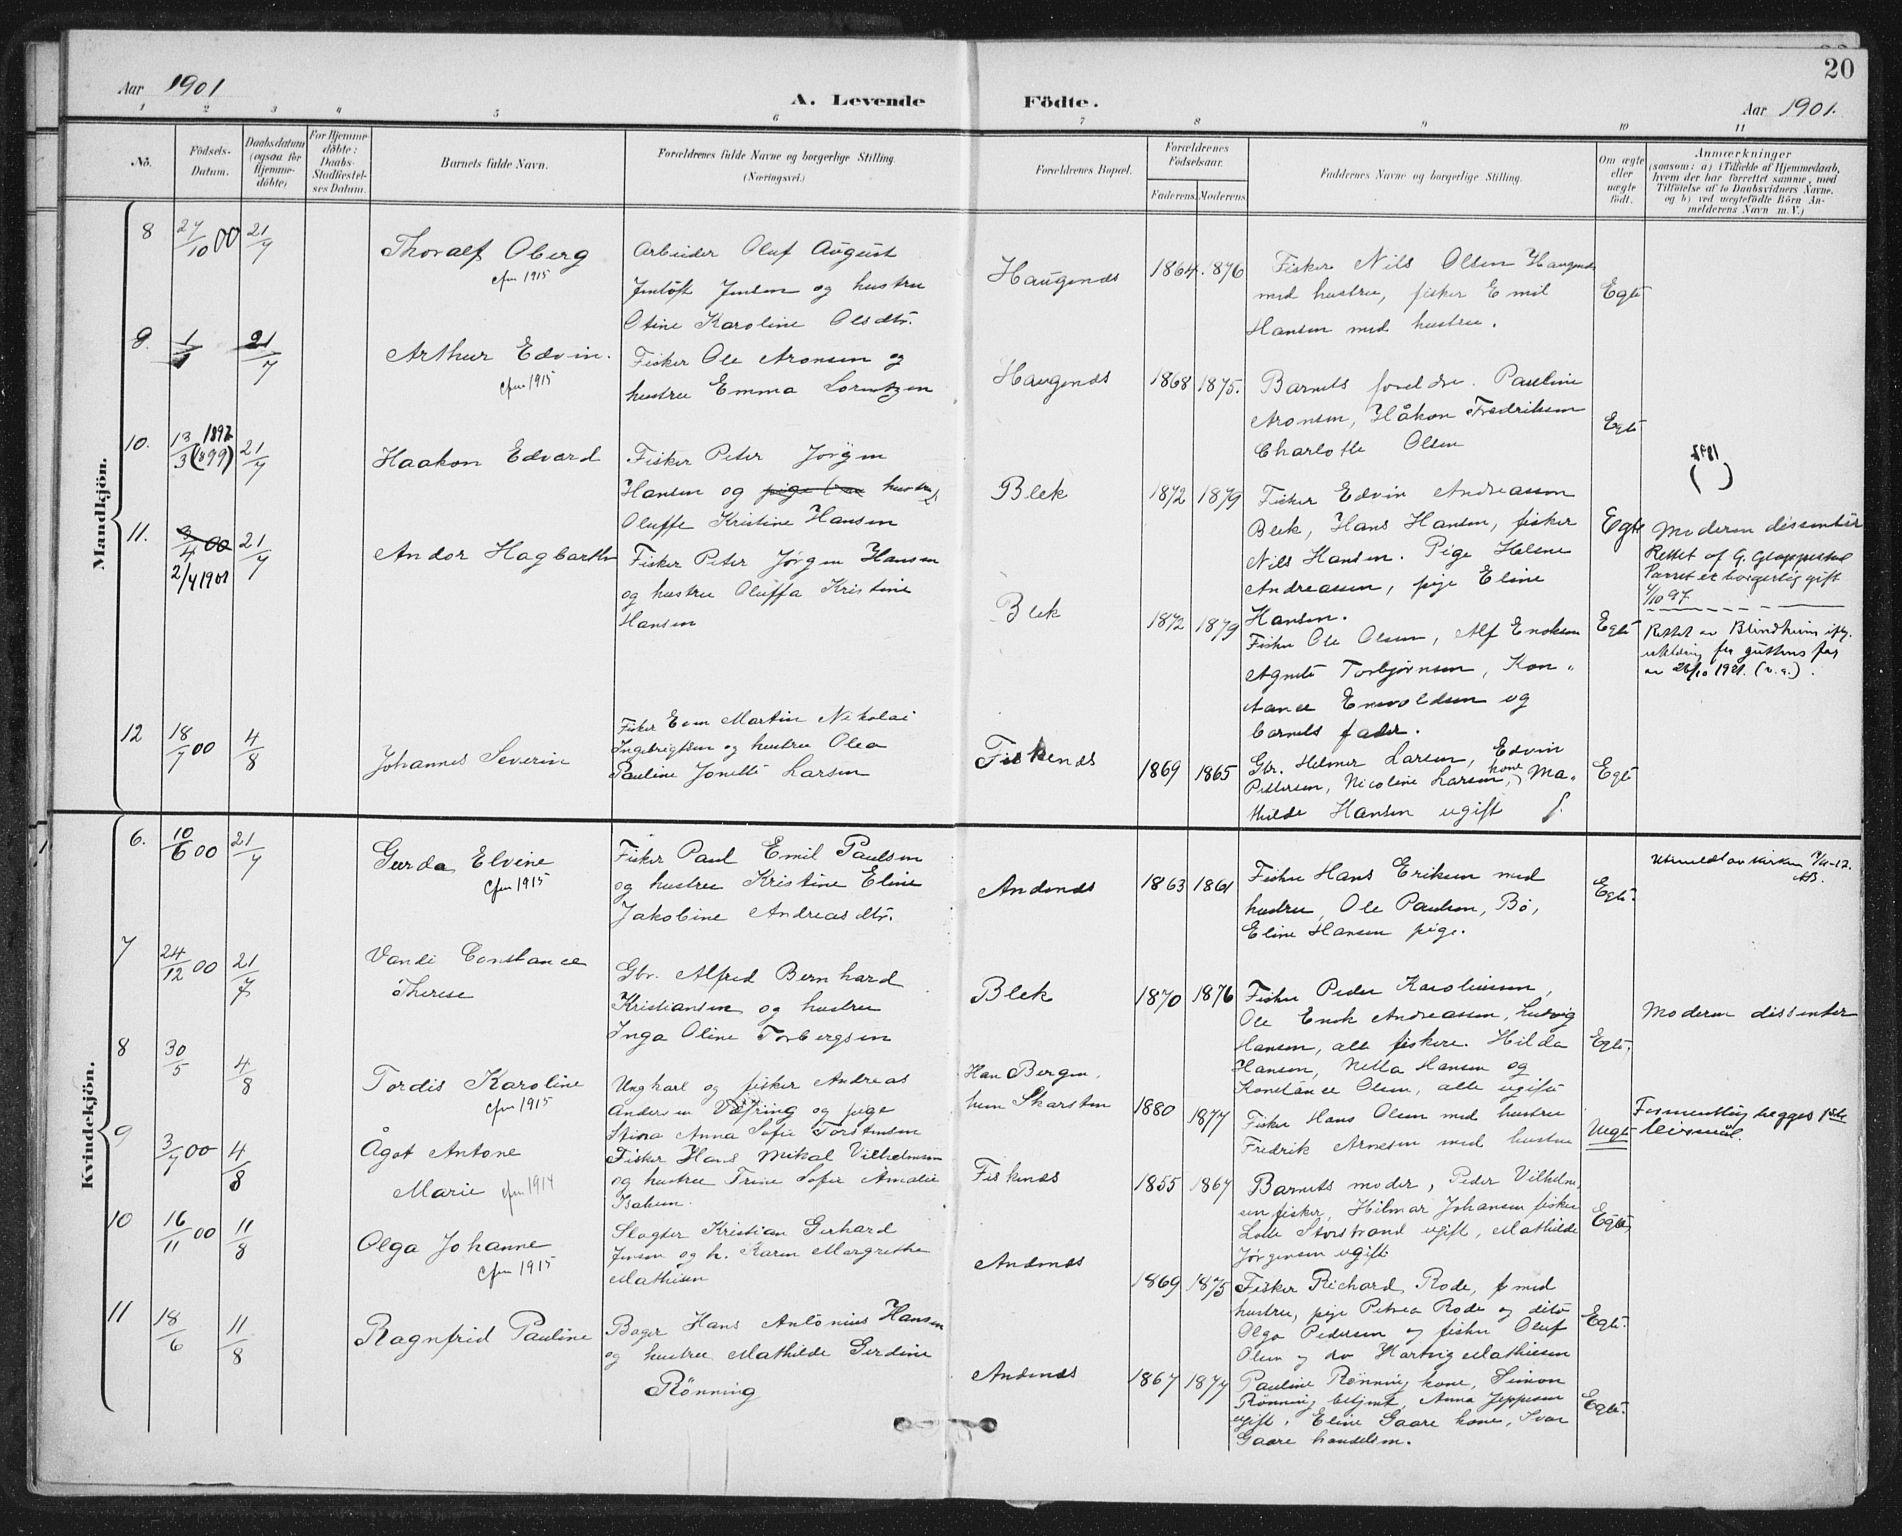 20
Aar 1901
A. Levende Födte.
Aar 1901.
1 2 3 4 5 6 7 8 9 10 11
No.
Födsels-Datum.
Daabsdatum (ogsaa for Hjemme-döbte)
For Hjemme-döbte: Daabs-Stadfæstel-ses Datum.
Barnets fulde Navn.
Forældrenes fulde Navne og borgerlige Stilling. (Næringsvei.)
Forældrenes Bopæl.
Forældrenes Födselsaar.
Faderens. Moderens.
Faddernes Navne og borgerlige Stilling.
Om ægte eller uægte födt.
Anmærkninger
(saasom: a) i Tilfælde af Hjemmedaab, hvem der har forrettet samme, med Tilföielse af to Daabsvidners Navne, og b) ved uægtefödte Börn An-melderens Navn m. V.)
Mandkjön.
8 27/10 00 21/7 Thoralf Oberg
cfm 1915
Arbeider Oluf August
Jentoft Jensen og hustru
Otine Karoline Olsdtr.
Haugenes 1864. 1876
Fisker Nils Olsen Haugenes
med hustru, fisker Emil
Hansen med hustru.
Egte
9. 1/1 21/7 Arthur Edvin.
cfm 1915
Fisker Ole Aronsen og
hustru Emma Lorntzen
Haugenes 1868 1875.
Barnets foreldre. Pauline
Aronsen, Håkon Fredriksen
Charlotte Olsen
Egte
10. 13/3 1897 (1899) 21/7 Haakon Edvard
Fisker Peter Jörgen
Hansen og hustru
Oluffe Kristine Hansen
Blek 1872 1879
Fisker Edvin Andreassen
Blek, Hans Hansen, fisker
Nils Hansen. Pige Helene
Andreassen, pige Eline
Hansen.
Egte
(1897)
Moderen dissenter
Rettet af G. Gloppestad
Parret er borgerlig gift
/10 97.
11. 3/4 00 21/7
2/4 1901
Andor Hagbarth
Fisker Peter Jörgen Hansen
og hustru Oluffa Kristine
Hansen
Blek 1872 1879
Fisker Ole Olsen, Alf Enoksen
Agnete Torbjørnsen, Kon-
stance Envoldsen og
barnets fader.
Egte
Rettet av Blindheim iflg.
erklæring fra guttens far
av 26/10 1921. (v. a.).
12 18/7 00 4/8 Johannes Severin
Fisker Even Martin Nikolai
Ingebrigtsen og hustru Olea
Pauline Jonette Larsen
Fiskenes 1869 1865
Gbr. Helmer Larsen, Edvin
Pettersen, Nicoline Larsen, kone, Ma-
thilde Hansen ugift
Egte
Kvindekjön.
6. 10/6 00 21/7 Gerda Elvine
cfm 1915
Fisker Paul Emil Paulsen
og hustru Kristine Eline
Jakobine Andreasdtr.
Andenes 1863 1861
Fisker Hans Eriksen med
hustru, Ole Paulsen, Bö,
Eline Hansen pige.
Egte.
Utmeldt av kirken
7 24/12 00 21/7 Vandi Constance
Therese
Gbr. Alfred Bernhard
Kristiansen og hustru
Inga Oline Torbergsen
Blek 1870 1876
Fisker Peder Karoliussen,
Ole Enok Andreassen, Ludvig
Hansen, alle fiskere. Hilda
Hansen, Netta Hansen og
Konstance Olsen, alle ugifte
Egte.
Moderen dissenter
8 30/5 4/8 Tordis Karoline
cfm 1915
Ungkarl og fisker Andreas
Andersen Væfring og pige
Stina Anna Sofie Torstensen
Han Bergen,
hun Skarsten
1880 1877
Fisker Hans Olsen med hustru
Fredrik Arnesen med hustru
Uegte
Formentlig begges 1ste
leirmål.
9 3/7 00 4/8 Ågot Antone
Marie cfm 1914
Fisker Hans Mikal Vilhelmsen
og hustru Trine Sofie Amalie
Isaksen.
Fiskenes 1855 1867
Barnets moder, Peder Vilhelm-
sen fisker, Hilmar Johansen fisker
Lotte Storstrand ugift, Mathilde
Jörgensen ugift
Egte,
10 16/11 00 11/8 Olga Johanne
cfm 1915
Slagter Kristian Gerhard
Jensen og h. Karen Margrethe
Mathisen
Andenes
1869 1875
Fisker Richard Rode, f med
hustru, pige Petrea Rode og dito
Olga Pedersen og fisker Oluf
Olsen og do Hartvig Mathiesen
Egte.
11 18/6 11/8 Ragnfrid Pauline
Bager Hans Antonius Hansen
og hustru Mathilde Gerdine
Rönning
Andenes 1867 1877
Pauline Rönning kone, Simon
Rönning betjent, Anna Jeppesen
ugift, Eline Gaare kone, Ivar
Gaare handelsm.
Egte.